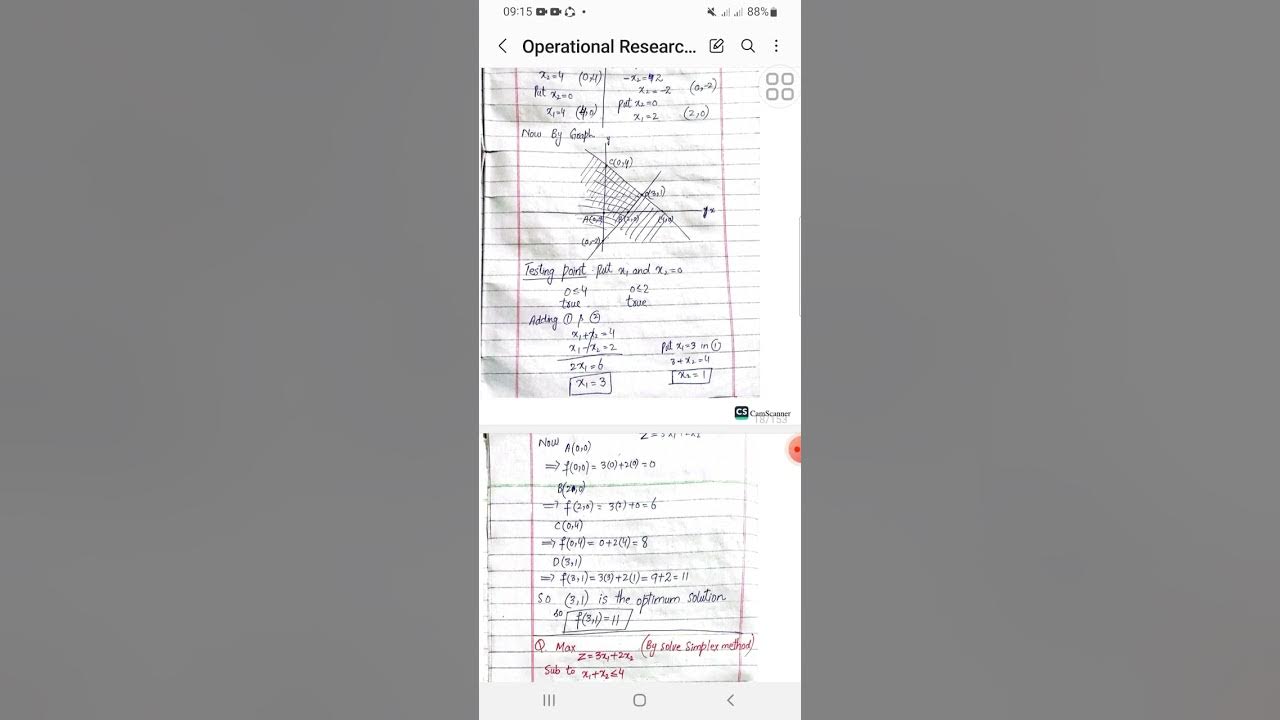 09:15 88%
Operational Researc...
x₂=4 (0,4) -x₂=2
Put x₂=0 x₂=-2 (0,-2)
x₁=4 (4,0) Put x₂=0
x₁=2 (2,0)
Now By Graph
y
C(0,4)
D(3,1)
A(0,0) B(2,0) x
(0,-2)
Testing point Put x₁ and x₂=0
0≤4 0≤2
true true
Adding ① & ②
x₁+x₂=4
x₁-x₂=2 Put x₁=3 in ①
2x₁=6 3+x₂=4
x₁=3 x₂=1
CS CamScanner
18/153
Now Z=3x₁+2x₂
A(0,0)
⇒ f(0,0)=3(0)+2(0)=0
B(2,0)
⇒ f(2,0)= 3(2)+0=6
C(0,4)
⇒ f(0,4)=0+2(4)=8
D(3,1)
⇒ f(3,1)=3(3)+2(1)=9+2=11
So (3,1) is the optimum solution
so f(3,1)=11
Q. Max Z=3x₁+2x₂ (By solve Simplex method)
Sub to x₁+x₂≤4